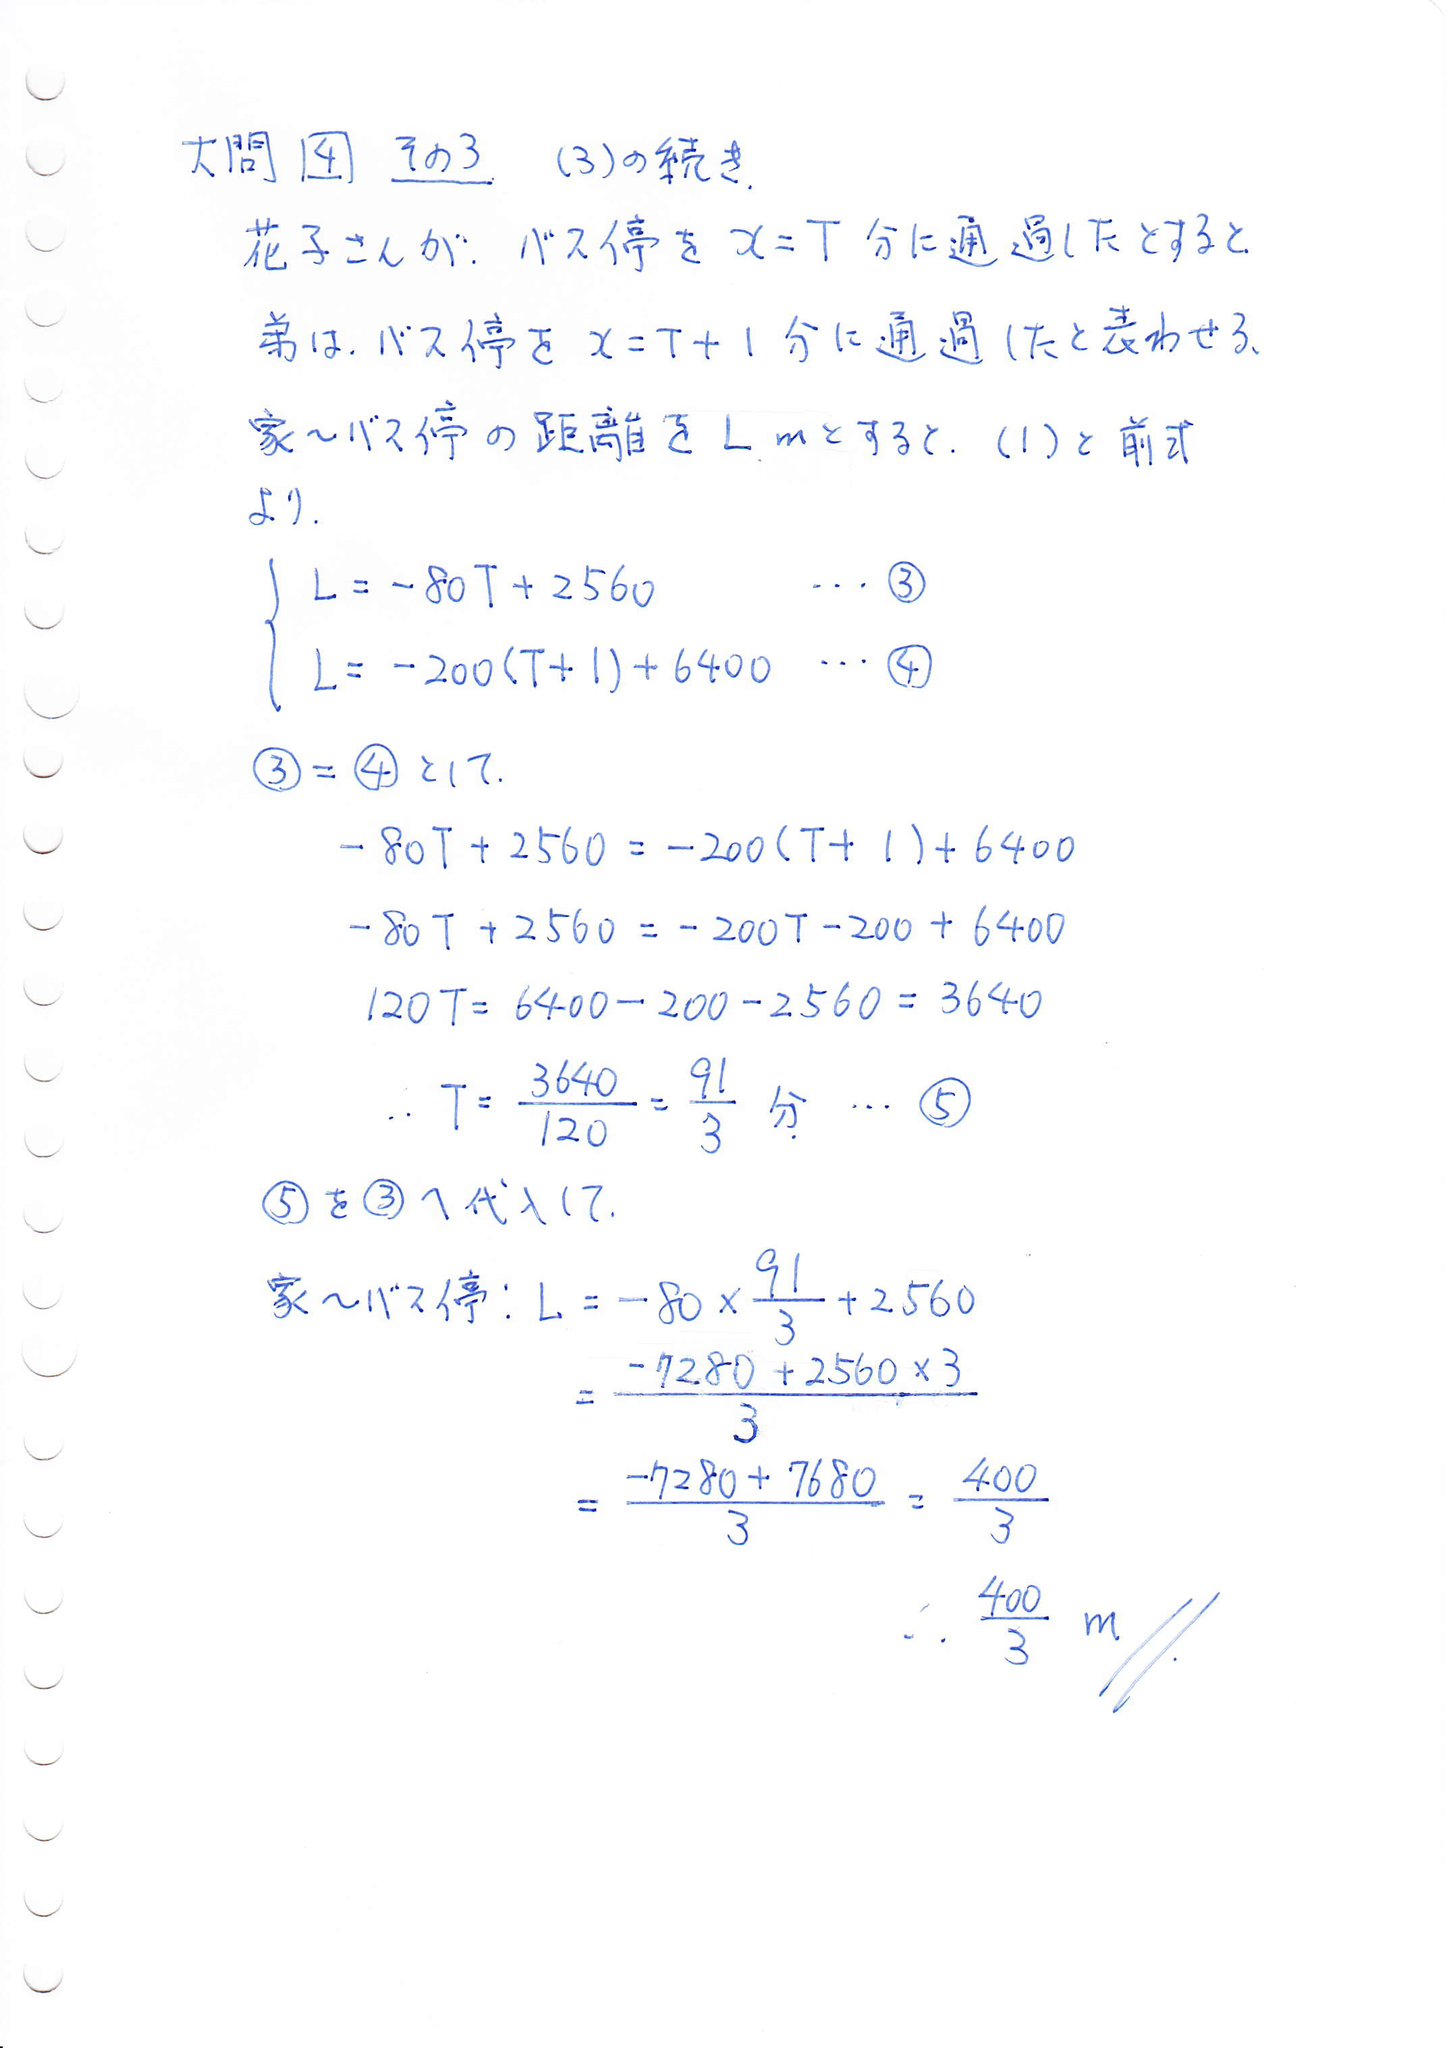 大問 4 その3 (3)の続き.
花子さんが、バス停を x=T 分に通過したとすると
弟は、バス停を x=T+1 分に通過したと表わせる、
家〜バス停の距離を L mとすると、(1)と前式
より、
L = -80T + 2560 … ③
L = -200(T+1) + 6400 … ④
③ = ④ として、
-80T + 2560 = -200(T+1) + 6400
-80T + 2560 = -200T - 200 + 6400
120T = 6400 - 200 - 2560 = 3640
∴ T = 3640/120 = 91/3 分 … ⑤
⑤を③へ代入して、
家〜バス停: L = -80 × 91/3 + 2560
= (-7280 + 2560 × 3)/3
= (-7280 + 7680)/3 = 400/3
∴ 400/3 m